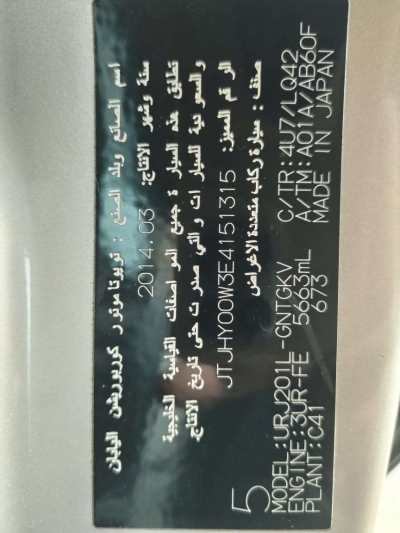 اسم الصانع وبلد الصنع : تويوتا موتور كوربوريشن اليابان
سنة وشهر الانتاج: 2014.03
تطابق هذه السيارة جميع المواصفات القياسية الخليجية
والسعودية للسيارات والتي صدرت حتى تاريخ الانتاج.
الرقم المميز: JTJHY00W3E4151315
صنف : سيارة ركاب متعددة الاغراض
5
MODEL:URJ201L-GNTGKV C/TR:4U7/LQ42
ENGINE:3UR-FE 5663mL A/TM:A01A/AB60F
PLANT:C41 673 MADE IN JAPAN